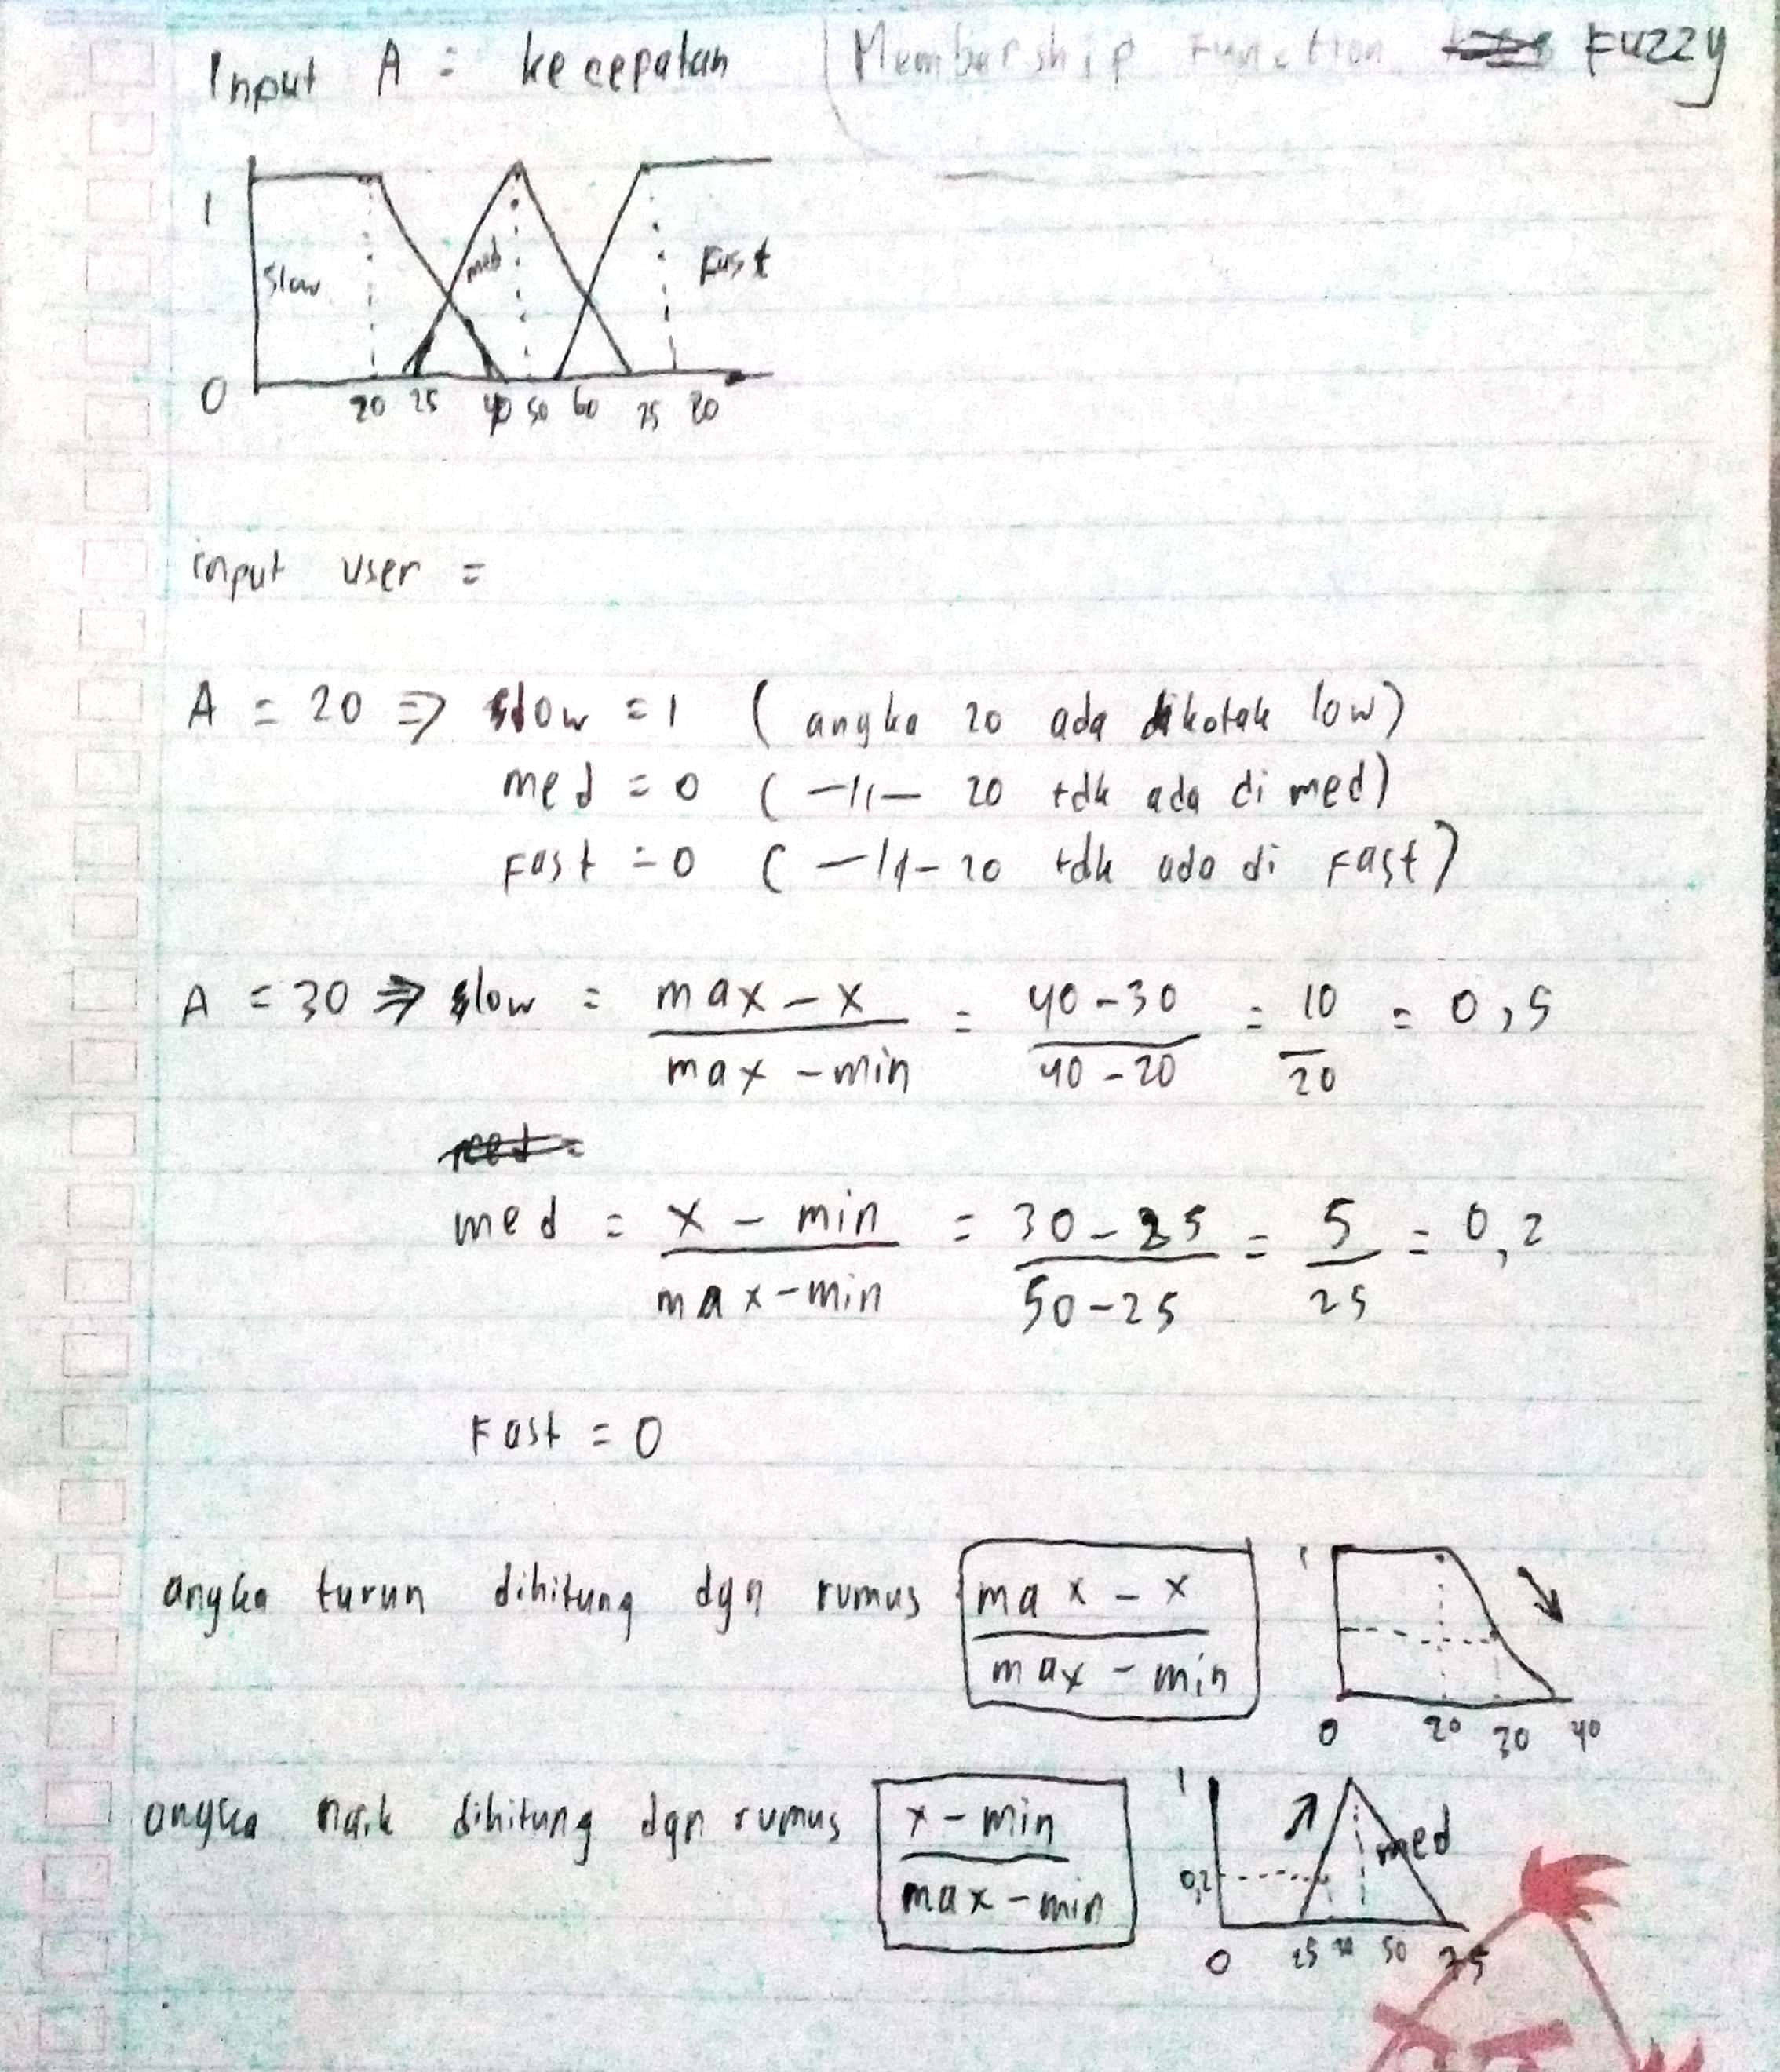 Input A = kecepatan Membership Function Fuzzy
1
Slow med Fast
0
20 25 40 50 60 75 80
input user =
A = 20 => slow = 1 ( angka 20 ada dikotak low)
med = 0 ( -11- 20 tdk ada di med)
Fast = 0 ( -11- 20 tdk ada di Fast)
A = 30 => slow = max - x / max - min = 40 - 30 / 40 - 20 = 10 / 20 = 0,5
med = x - min / max - min = 30 - 25 / 50 - 25 = 5 / 25 = 0,2
Fast = 0
angka turun dihitung dgn rumus max - x / max - min
1
0 20 30 40
angka naik dihitung dgn rumus x - min / max - min
1
med
0,2
0 25 30 50 75